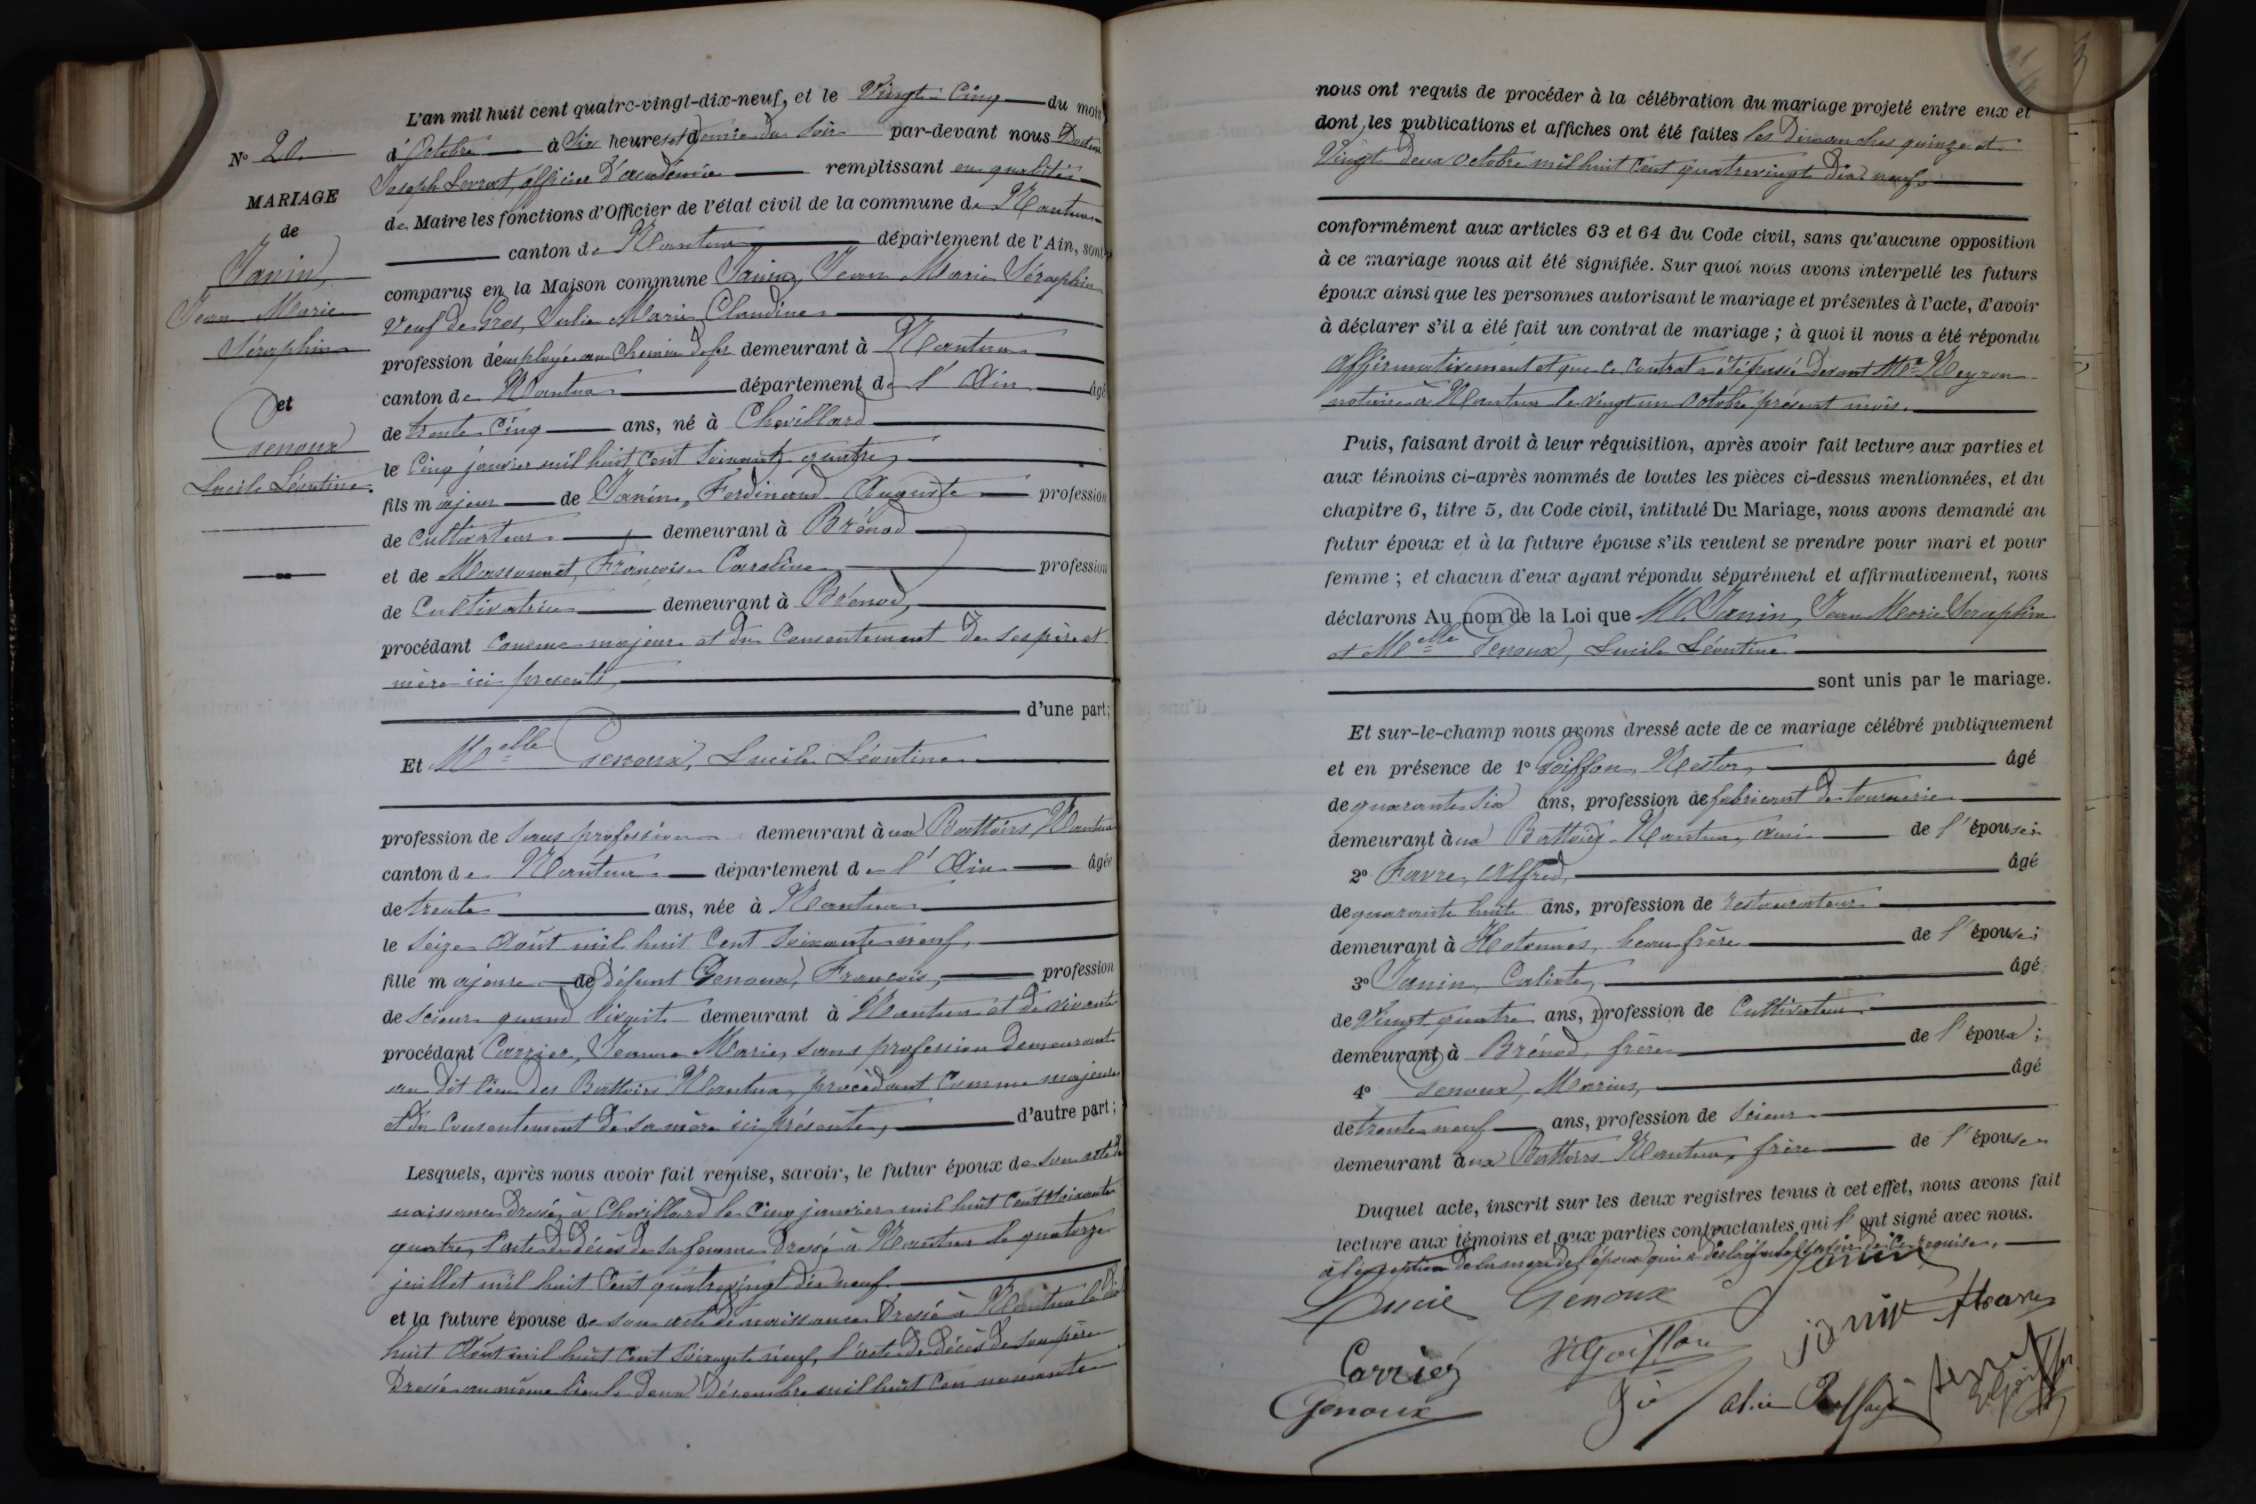 N° 20.
MARIAGE
de
Janin
Jean Marie
Séraphin
et
Genoux
Lucile Léontine.
L'an mil huit cent quatre-vingt-dix-neuf, et le Vingt-Cinq du mois
d'Octobre à Six heures et demie du soir par-devant nous
Joseph officier d'académie remplissant en qualité
de Maire les fonctions d'Officier de l'état civil de la commune de Nantua
canton de Nantua département de l'Ain, sont
comparus en la Maison commune Janin, Jean Marie Séraphin
Veuf de Gros, Julie Marie Claudine
profession d'employé au Chemin de fer demeurant à Nantua
canton de Nantua département de l'Ain âgé
de trente Cinq ans, né à Chevillard
le Cinq janvier mil huit Cent Soixante quatre,
fils majeur de Janin, Ferdinand Auguste profession
de Cultivateur demeurant à Brénod
et de Massonnet, Françoise Caroline profession
de Cultivatrice demeurant à Brénod,
procédant Comme majeur et du Consentement de ses père et
mère ici présents,
d'une part;
Et Melle Genoux, Lucile Léontine
profession de Sans profession demeurant à ux Battoirs, Nantua
canton de Nantua département de l'Ain âgée
de trente ans, née à Nantua
le Seize Août mil huit Cent Soixante neuf,
fille majeure de défunt Genoux, François, profession
de Scieur quand vivait demeurant à Nantua et de vivante
procédant Carrier, Jeanne Marie, sans profession demeurant
au dit lieu des Battoirs Nantua, procédant comme majeure
et du Consentement de sa mère ici présente, d'autre part;
Lesquels, après nous avoir fait remise, savoir, le futur époux de son acte de
naissance dressé à Chevillard le Cinq janvier mil huit Cent Soixante
quatre, l'acte de décès de sa femme dressé à Nantua le quatorze
juillet mil huit Cent quatrevingt dix neuf
et la future épouse de son acte de naissance dressé à Nantua le dix
huit Août mil huit Cent Soixante neuf, l'acte de décès de son père
dressé au même lieu le deux Décembre mil huit Cent nonante
nous ont requis de procéder à la célébration du mariage projeté entre eux et
dont les publications et affiches ont été faites les dimanches quinze et
Vingt deux octobre mil huit Cent quatrevingt Dix neuf
conformément aux articles 63 et 64 du Code civil, sans qu'aucune opposition
à ce mariage nous ait été signifiée. Sur quoi nous avons interpellé les futurs
époux ainsi que les personnes autorisant le mariage et présentes à l'acte, d'avoir
à déclarer s'il a été fait un contrat de mariage ; à quoi il nous a été répondu
affirmativement et que ce Contrat a été passé devant Me Neyron
notaire à Nantua le vingt un Octobre présent mois.
Puis, faisant droit à leur réquisition, après avoir fait lecture aux parties et
aux témoins ci-après nommés de toutes les pièces ci-dessus mentionnées, et du
chapitre 6, titre 5, du Code civil, intitulé Du Mariage, nous avons demandé au
futur époux et à la future épouse s'ils veulent se prendre pour mari et pour
femme ; et chacun d'eux ayant répondu séparément et affirmativement, nous
déclarons Au nom de la Loi que M. Janin, Jean Marie Séraphin
et Melle Genoux, Lucile Léontine
sont unis par le mariage.
Et sur-le-champ nous avons dressé acte de ce mariage célébré publiquement
et en présence de 1° Goiffon, Nestor, âgé
de quarante six ans, profession de fabricant de tournerie
demeurant à ux Battoirs Nantua, ami de l'épouse;
2° Favre, Alfred, âgé
de quarante huit ans, profession de restaurateur
demeurant à Hotonnes, beau frère de l'épouse;
3° Janin, Calixte, âgé
de Vingt quatre ans, profession de Cultivateur
demeurant à Brénod, frère de l'époux;
4° Genoux, Marius, âgé
de trente neuf ans, profession de Scieur
demeurant à ux Battoirs Nantua, frère de l'épouse
Duquel acte, inscrit sur les deux registres tenus à cet effet, nous avons fait
lecture aux témoins et aux parties contractantes qui l'ont signé avec nous.
à l'exception de la mère de l'époux qui a déclaré ne le savoir de ce requise.
Janin
Lucie Genoux
Carrier
Genoux